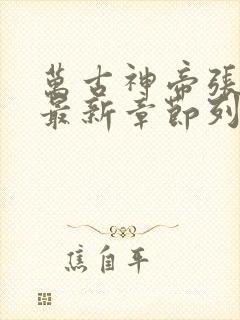 萬古神帝張
最新章節列
焦自平